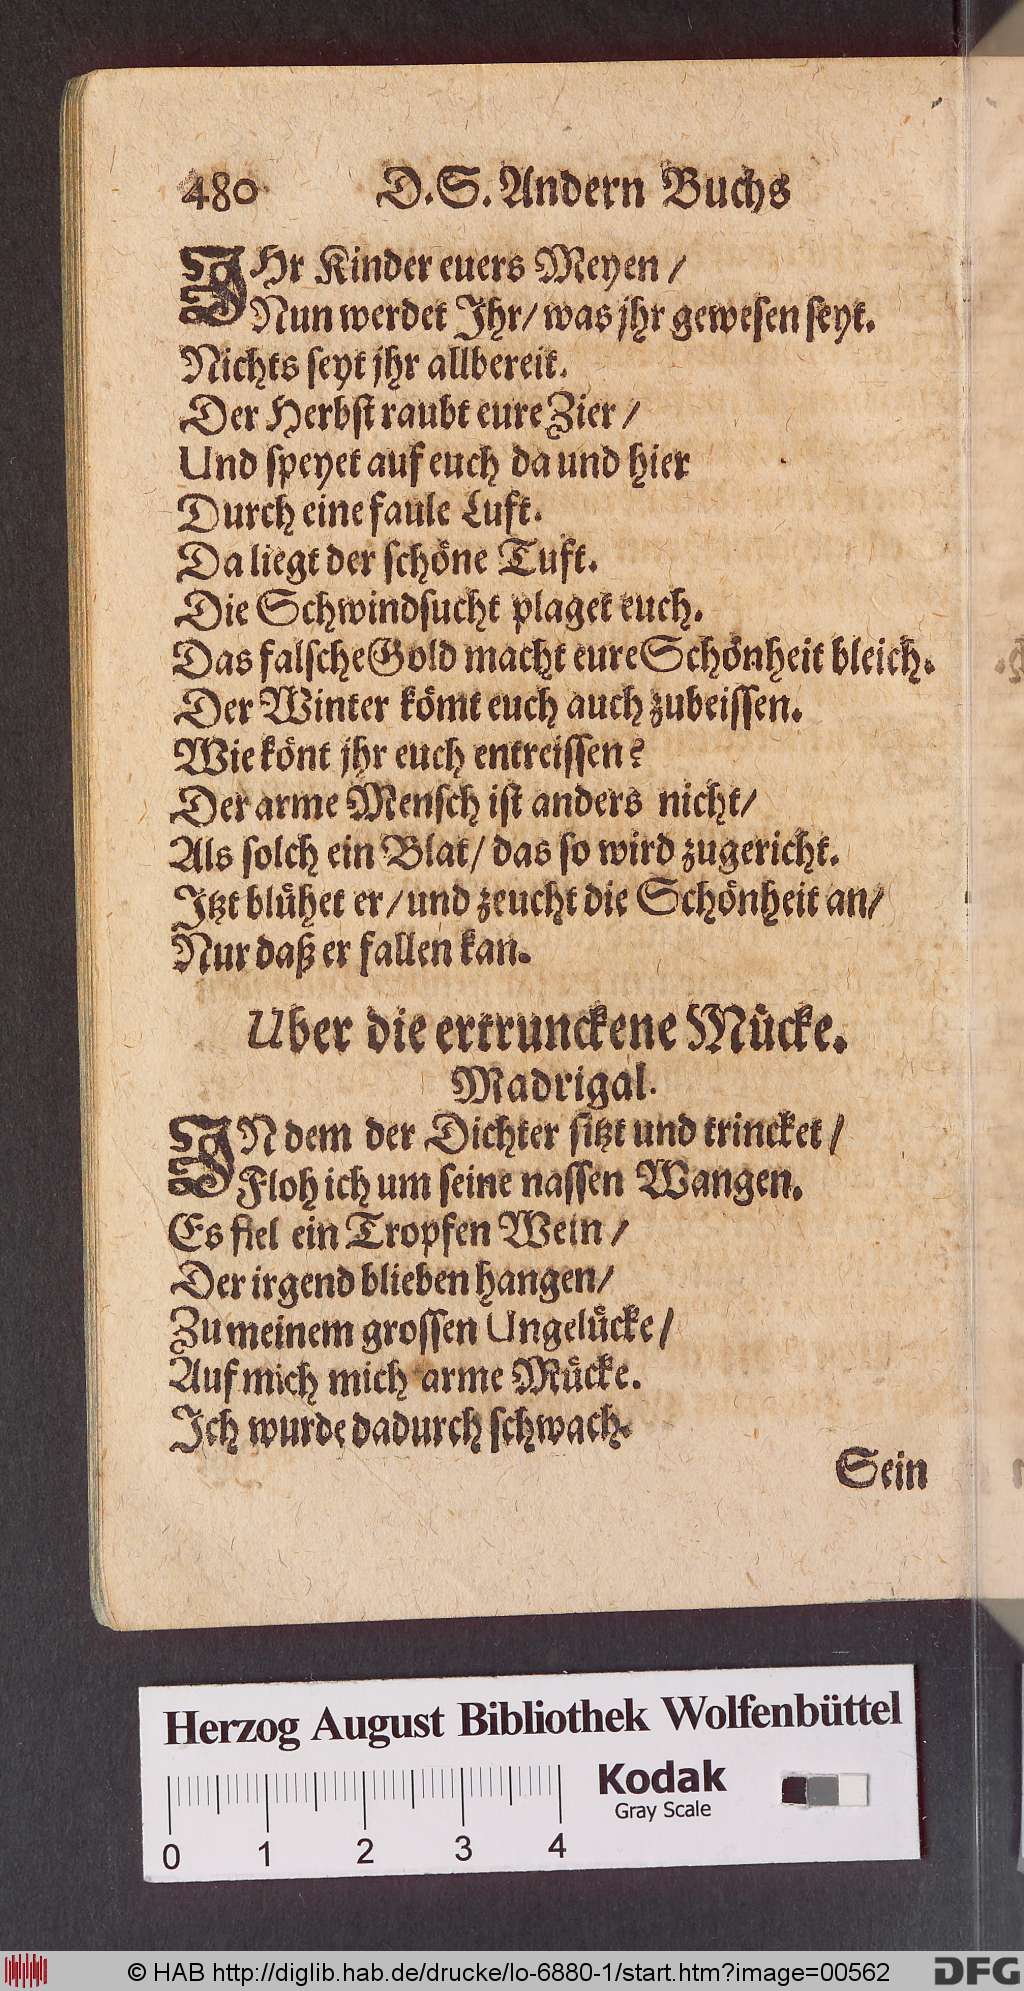 480 D.S. Andern Buchs
IHr Kinder euers Meyen /
Nun werdet Ihr/ was jhr gewesen seyt.
Nichts seyt jhr allbereit.
Der Herbst raubt eure Zier /
Und speyet auf euch da und hier
Durch eine faule Luft.
Da liegt der schöne Tuft.
Die Schwindsucht plaget euch.
Das falsche Gold macht eure Schönheit bleich.
Der Winter kömt euch auch zubeissen.
Wie könt jhr euch entreissen?
Der arme Mensch ist anders nicht/
Als solch ein Blat/ das so wird zugericht.
Itzt blühet er/ und zeucht die Schönheit an/
Nur daß er fallen kan.
Uber die ertrunckene Mücke.
Madrigal.
INdem der Dichter sitzt und trincket /
Floh ich um seine nassen Wangen.
Es fiel ein Tropfen Wein /
Der irgend blieben hangen/
Zu meinem grossen Ungelücke /
Auf mich mich arme Mücke.
Ich wurde dadurch schwach.
Sein
Herzog August Bibliothek Wolfenbüttel
Kodak
Gray Scale
0 1 2 3 4
© HAB http://diglib.hab.de/drucke/lo-6880-1/start.htm?image=00562
DFG